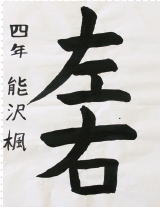 左右
四年 能沢楓